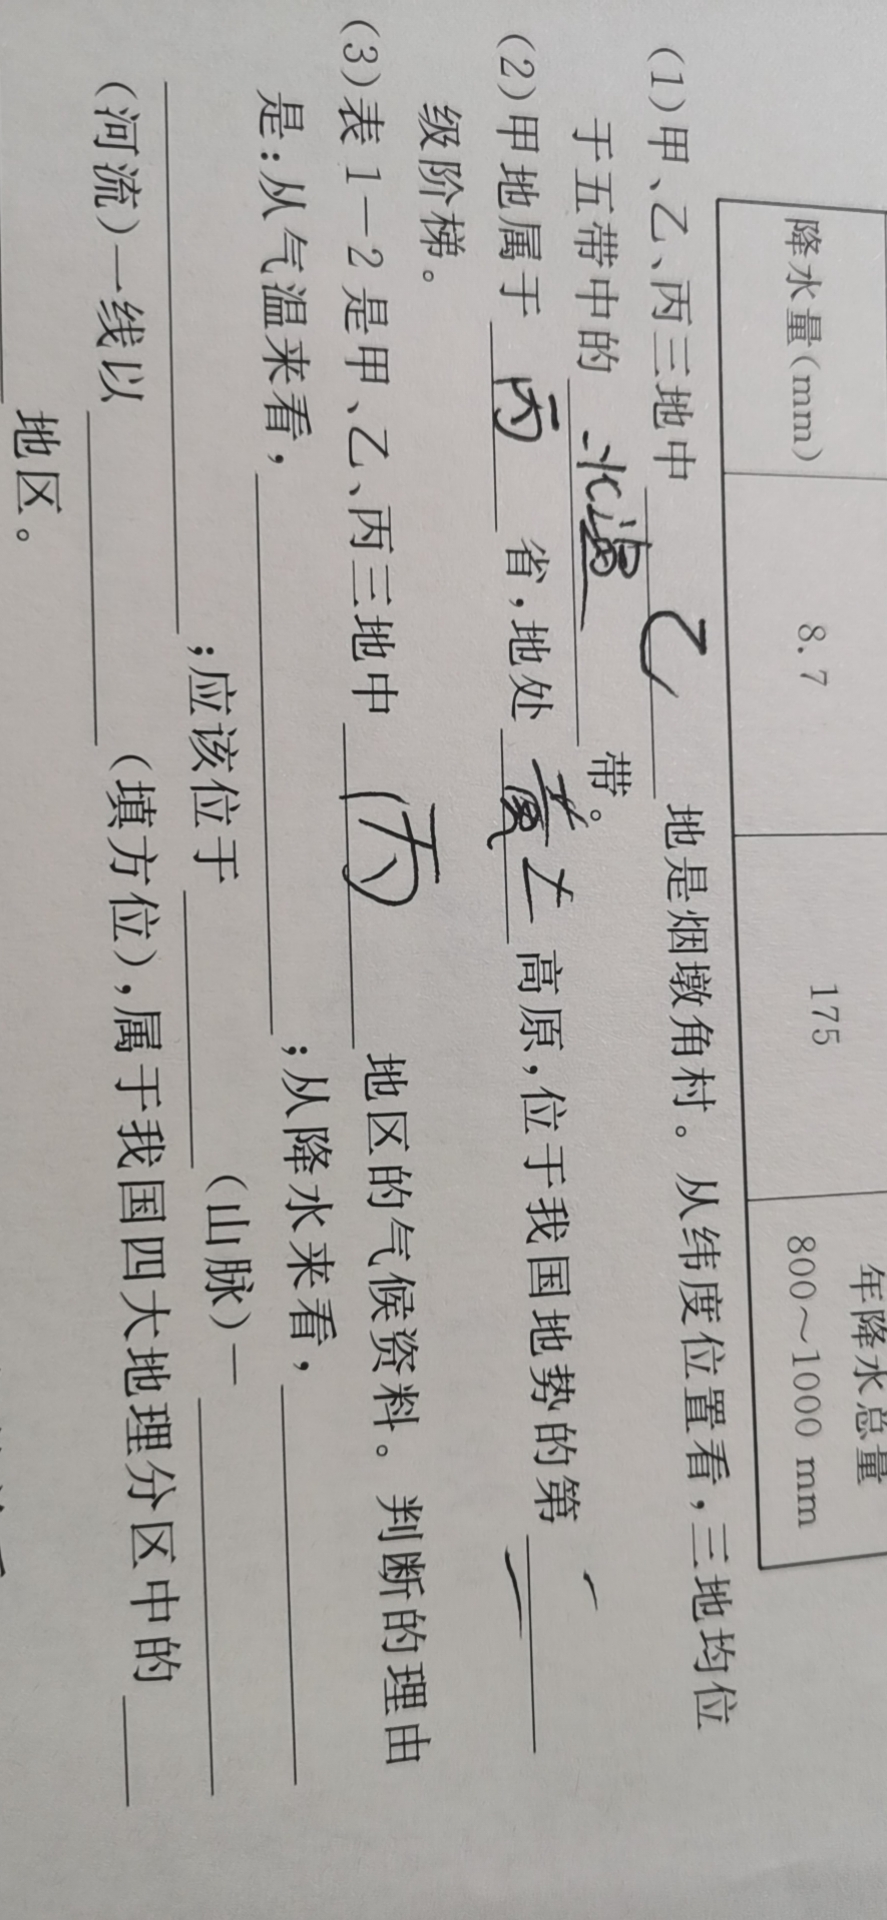 年降水总量
降水量(mm) 8.7 175 800～1000 mm
(1)甲、乙、丙三地中 乙 地是烟墩角村。从纬度位置看,三地均位
于五带中的 北温 带。
(2)甲地属于 丙 省,地处 黄土 高原,位于我国地势的第 二
级阶梯。
(3)表1-2是甲、乙、丙三地中 丙 地区的气候资料。判断的理由
是:从气温来看, ;从降水来看,
;应该位于 (山脉)—
(河流)一线以 (填方位),属于我国四大地理分区中的
地区。